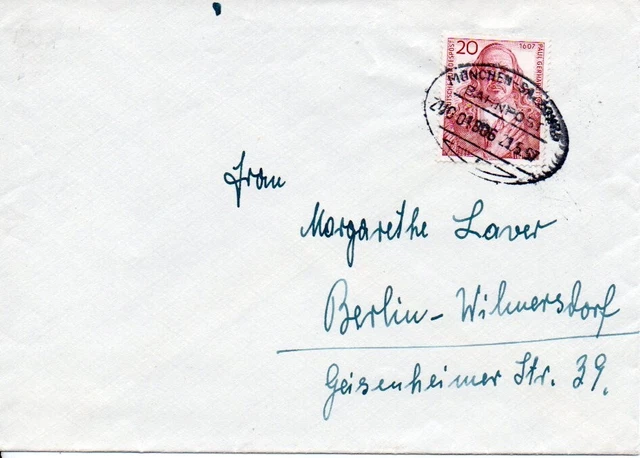 20
1607
DEUTSCHE BUNDESPOST
PAUL GERHARDT
MÜNCHEN-SALZBURG
BAHNPOST
ZUG 01806 21.5.57
Frau
Margarethe Laver
Berlin-Wilmersdorf
Geisenheimer Str. 39.